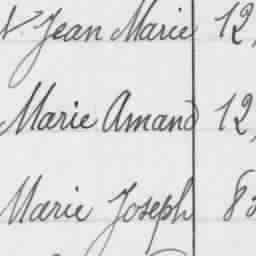 Jean Marie 12,
Marie Amand 12,
Marie Joseph 8